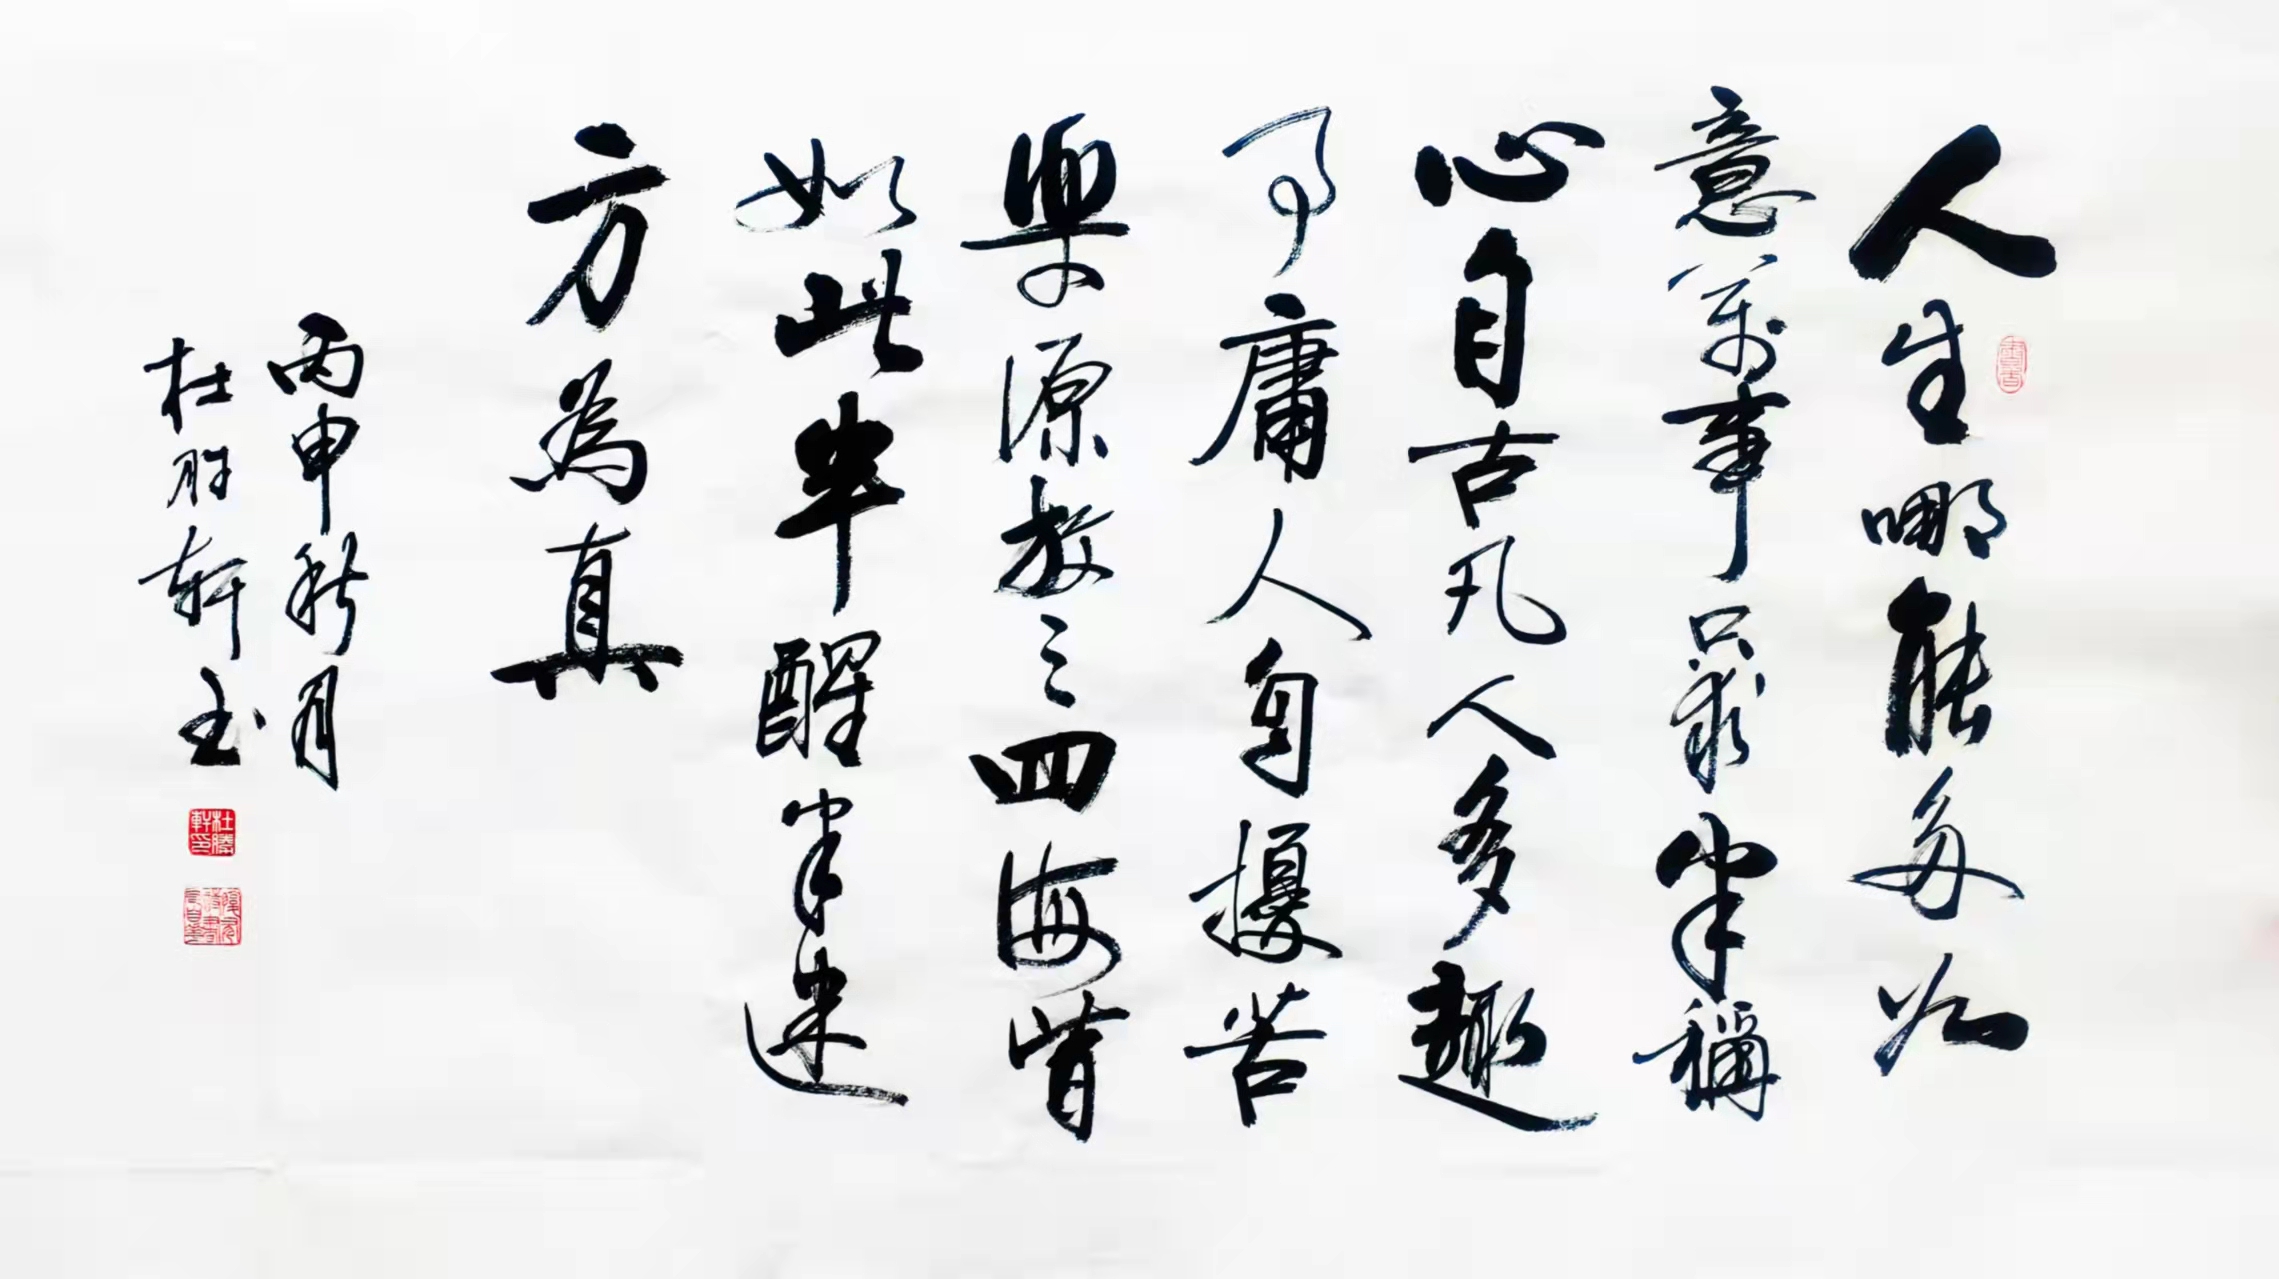 人生哪能多如
意萬事只求半稱
心自古凡人多趣
事庸人自擾苦
樂源放之四海皆
如此半醒半迷
方為真
丙申秋月
杜胜軒书
杜勝軒印